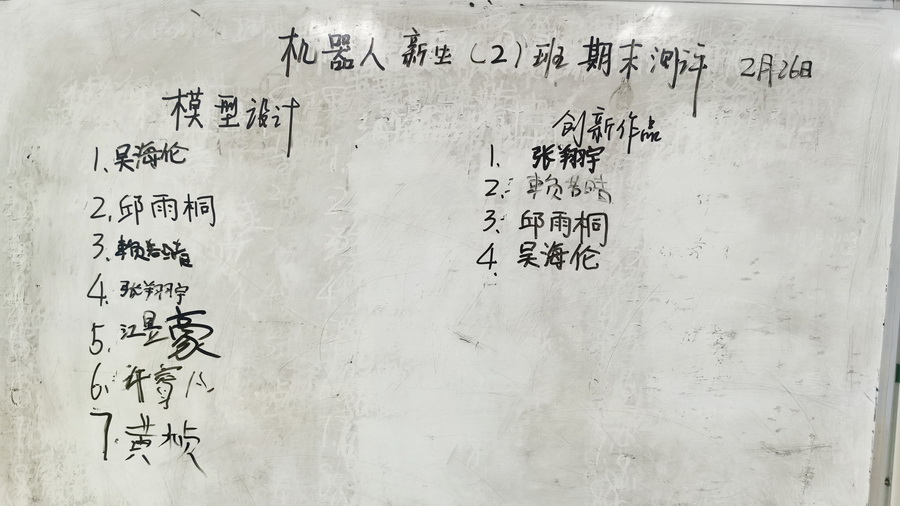 机器人新生(2)班期末测评 2月26日
模型设计
1.吴海伦
2.邱雨桐
3.赖若晴
4.张翔宇
5.江昱豪
6.许睿
7.黄桢
创新作品
1.张翔宇
2.赖若晴
3.邱雨桐
4.吴海伦